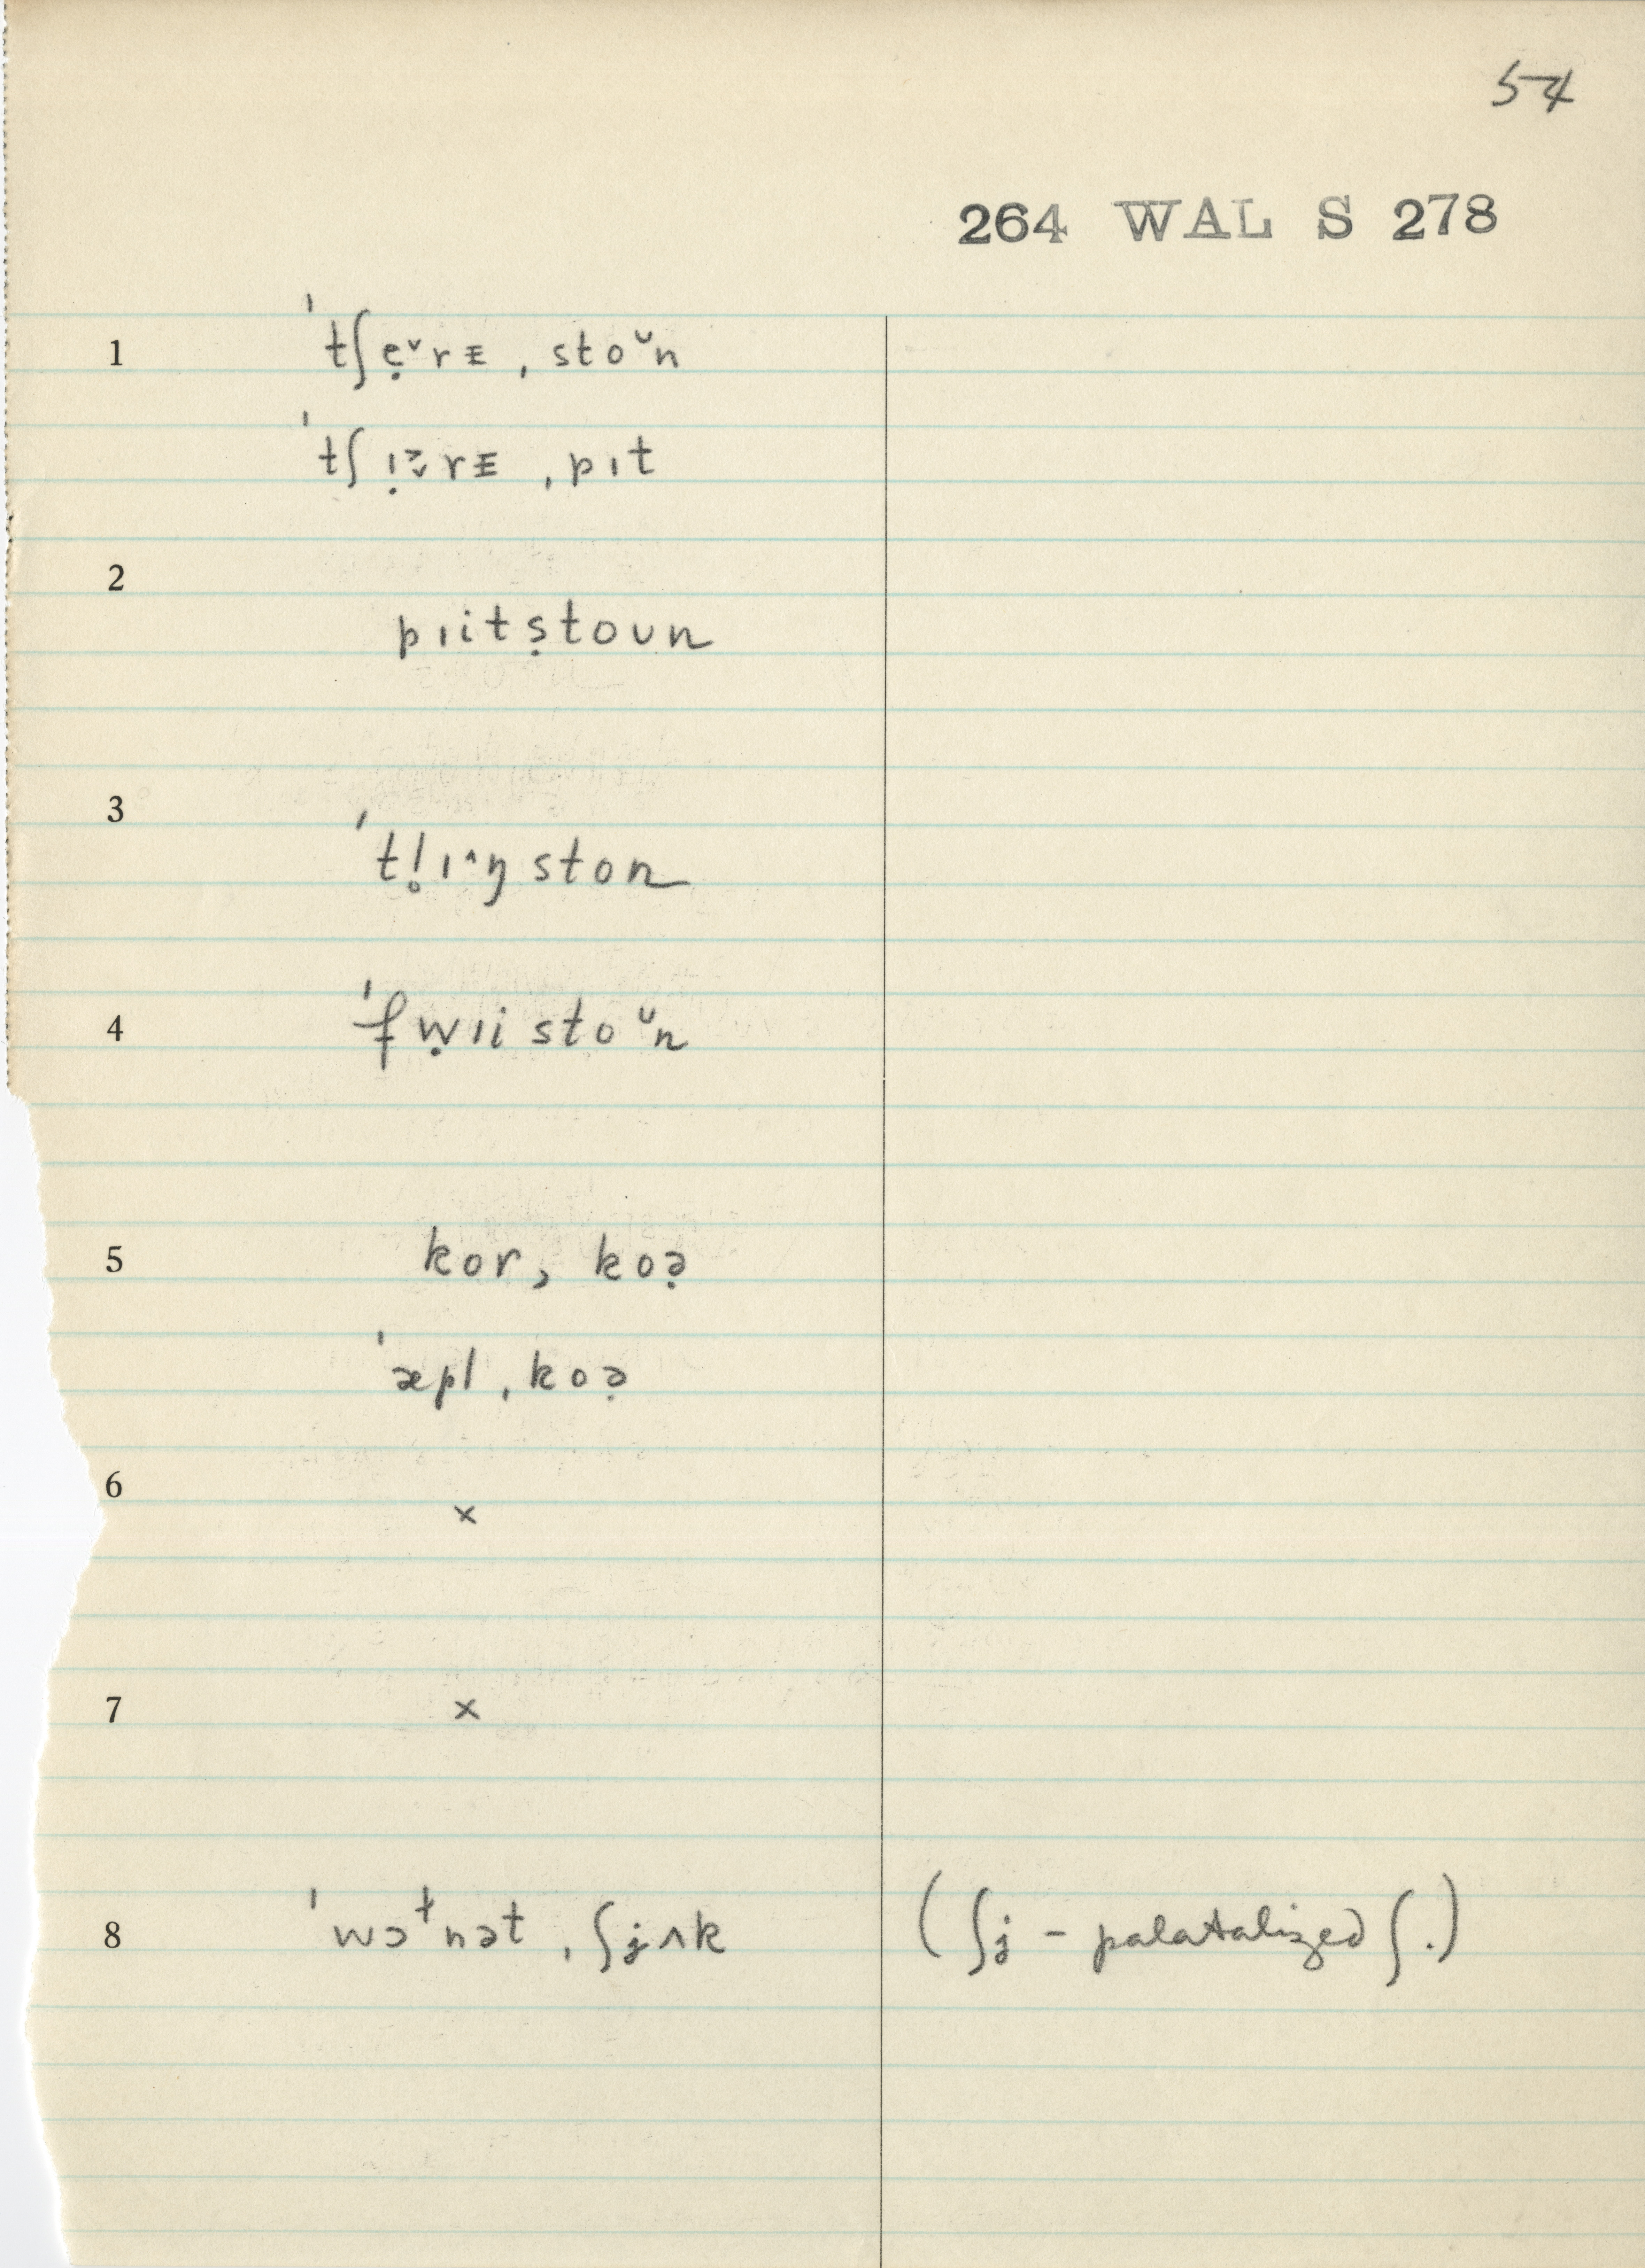 54
264 WAL S 278
1 ˈtʃẹ˅rᴇ ˌstoᶸn
ˈtʃɪ̣˃˅rᴇ ˌpɪt
2 pɪitṣtoʊn
3 ˈtl̥ɪ˄ŋston
4 ˈfẉɪistoᶸn
5 kor, koə̣
ˈæpl ˌkoə̣
6 ×
7 ×
8 ˈwɔᵗnət ˌʃjʌk (ʃj – palatalized ʃ.)